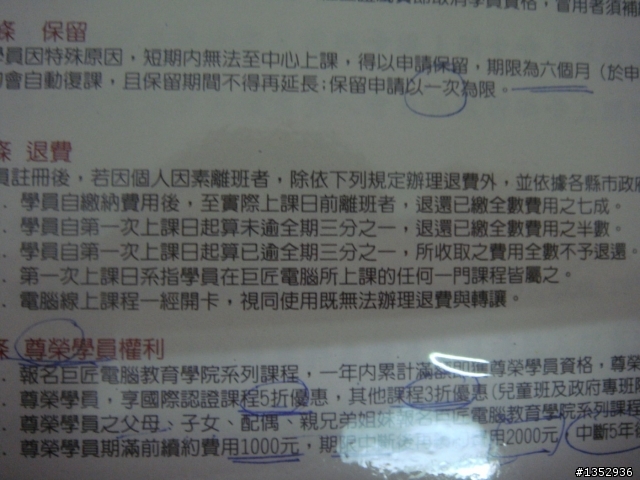 取消學員資格，冒用者須補
條 保留
學員因特殊原因，短期內無法至中心上課，得以申請保留，期限為六個月（於申
會自動復課，且保留期間不得再延長；保留申請以一次為限。
條 退費
員註冊後，若因個人因素離班者，除依下列規定辦理退費外，並依據各縣市政府
．學員自繳納費用後，至實際上課日前離班者，退還已繳全數費用之七成。
．學員自第一次上課日起算未逾全期三分之一，退還已繳全數費用之半數。
．學員自第一次上課日起算已逾全期三分之一，所收取之費用全數不予退還。
．第一次上課日系指學員在巨匠電腦所上課的任何一門課程皆屬之。
．電腦線上課程一經開卡，視同使用既無法辦理退費與轉讓。
條 尊榮學員權利
．報名巨匠電腦教育學院系列課程，一年內累計滿 尊榮學員資格，尊榮
．尊榮學員，享國際認證課程5折優惠，其他課程3折優惠（兒童班及政府專班
．尊榮學員之父母、子女、配偶、親兄弟姐妹 電腦教育學院系列課程
．尊榮學員期滿前續約費用1000元，期 用2000元，中斷5年
#1352936